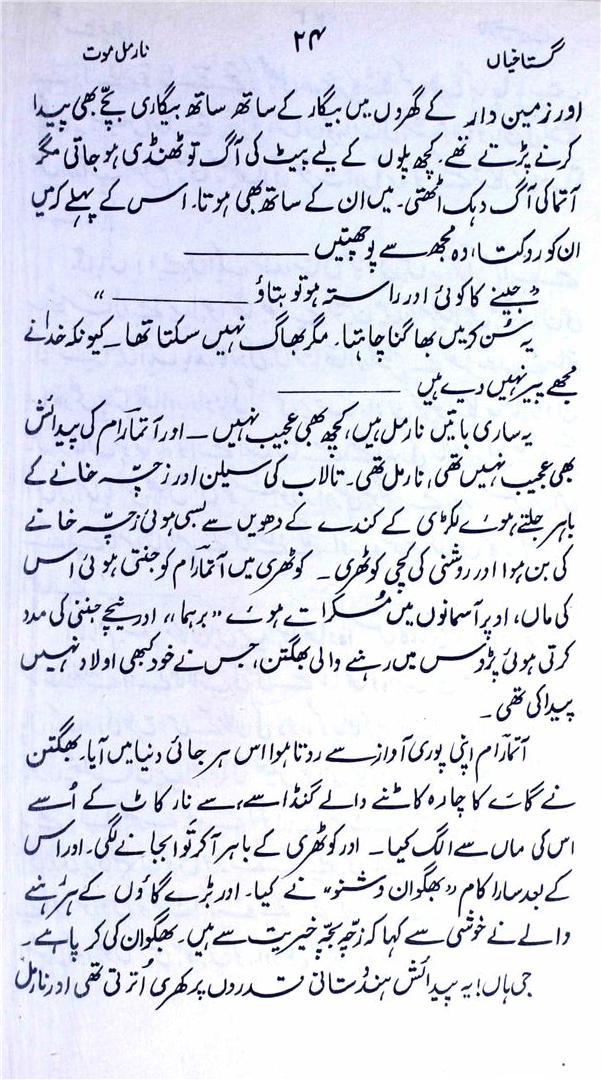 گستاخیاں
۲۴
نارمل موت
اور زمین دار کے گھروں میں بیگار کے ساتھ ساتھ بیگاری بچے بھی پیدا
کرنے پڑتے تھے۔ کچھ پلوں کے لیے پیٹ کی آگ تو ٹھنڈی ہو جاتی مگر
آتما کی آگ دہک اٹھتی۔ میں ان کے ساتھ بھی ہوتا۔ اس کے پہلے کہ میں
ان کو روکتا، وہ مجھ سے پوچھتیں ــــــــــــــ
”جینے کا کوئی اور راستہ ہو تو بتاؤ ــــــــــــــ“
یہ سُن کر میں بھاگنا چاہتا۔ مگر بھاگ نہیں سکتا تھا۔ کیونکہ خدا نے
مجھے پیر نہیں دیے ہیں ــــــــــــــ
یہ ساری باتیں نارمل ہیں، کچھ بھی عجیب نہیں ــ اور آتما رام کی پیدائش
بھی عجیب نہیں تھی، نارمل تھی۔ تالاب کی سیلن اور زچہ خانے کے
باہر جلتے ہوئے لکڑی کے کندے کے دھویں سے بسی ہوئی زچہ خانے
کی بن ہوا اور روشنی کی کچی کوٹھری ــ کوٹھری میں آتما رام کو جنتی ہوئی اس
کی ماں، اوپر آسمانوں میں مسکراتے ہوئے ”برہما“، اور نیچے جننی کی مدد
کرتی ہوئی پڑوس میں رہنے والی بھگتن، جس نے خود کبھی اولاد نہیں
پیدا کی تھی ــ
آتما رام اپنی پوری آواز سے روتا ہوا اس ہر جائی دنیا میں آیا۔ بھگتن
نے گائے کا چارہ کاٹنے والے گنڈاسے، سے نار کاٹ کے اُسے
اس کی ماں سے الگ کیا ــ اور کوٹھری کے باہر آ کر توا بجانے لگی۔ اور اس
کے بعد سارا کام ”بھگوان وشنو“ نے کیا۔ اور بڑے گاؤں کے ہر سننے
والے نے خوشی سے کہا کہ زچہ بچہ خیریت سے ہیں۔ بھگوان کی کرپا ہے ــ
جی ہاں! یہ پیدائش ہندُستانی قدروں پر کھری اُترتی تھی اور نارمل